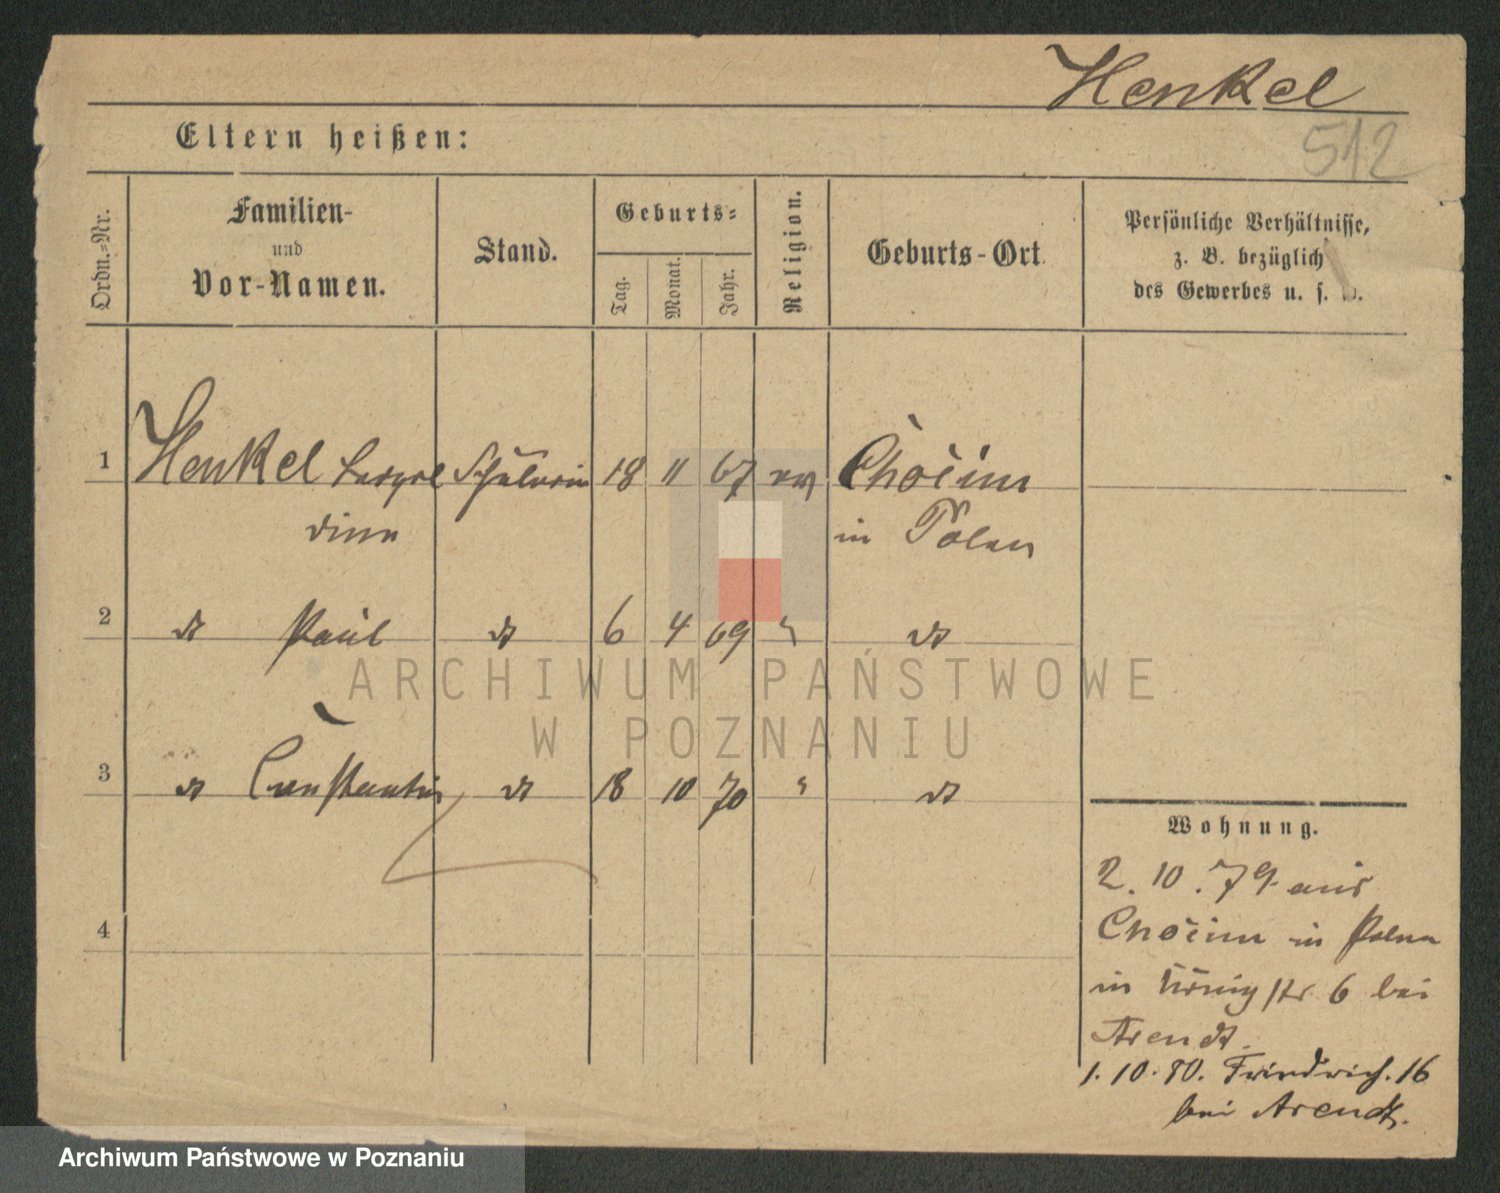 Henkel
512
Eltern heißen:
Ordn.-Nr.
Familien-
und
Vor-Namen.
Stand.
Geburts-
Tag.
Monat.
Jahr.
Religion.
Geburts-Ort.
Persönliche Verhältnisse,
z. B. bezüglich
des Gewerbes u. s. w.
1 Henkel Leopol Schülerin 18 11 67 ev Chocim
dine in Polen
2 dt Paul dt 6 4 69 " dt
3 dt Constantin dt 18 10 70 " dt
4
Wohnung.
2. 10. 79 aus
Chocim in Polen
in Königstr 6 bei
Arendt.
1. 10. 80. Friedrich. 16
bei Arendt.
ARCHIWUM PAŃSTWOWE
W POZNANIU
Archiwum Państwowe w Poznaniu